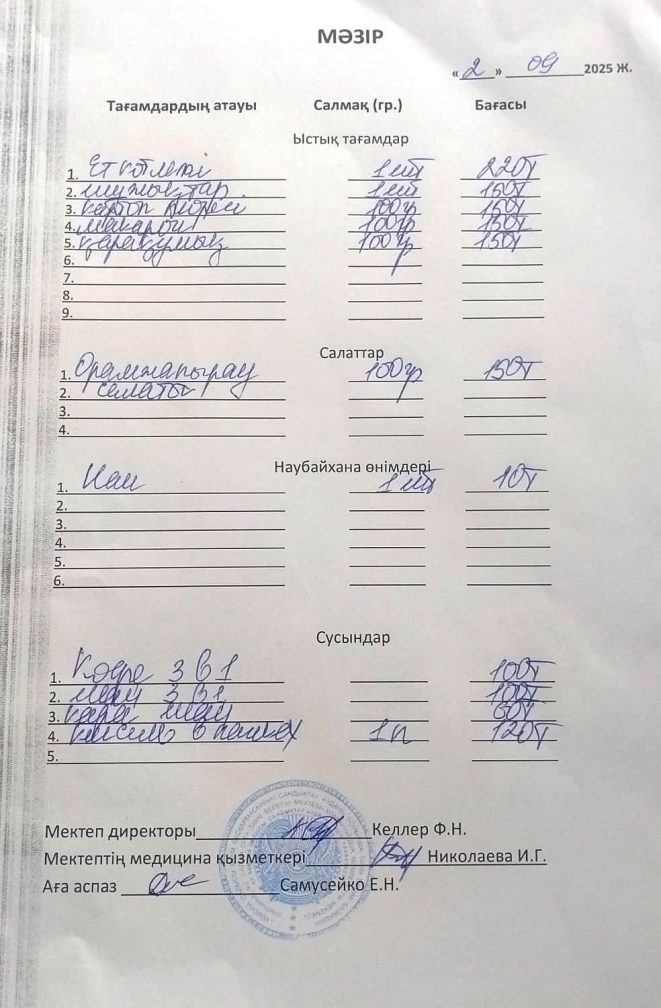 МӘЗІР
« 2 » 09 2025 Ж.
Тағамдардың атауы Салмақ (гр.) Бағасы
Ыстық тағамдар
1. Ет котлеті 1 шт 220т
2. шұжықтар 1 шт 150т
3. картоп пюресі 100гр 150т
4. макарон 100гр 150т
5. қарақұмық 100гр 150т
6.
7.
8.
9.
Салаттар
1. Орамжапырақ 100гр 150т
2. салаты
3.
4.
Наубайхана өнімдері
1. Нан 1 шт 10т
2.
3.
4.
5.
6.
Сусындар
1. Кофе 3 в 1 100т
2. шай 3 в 1 100т
3. қара шай
4. кисель в пачках 1п 120т
5.
Мектеп директоры Келлер Ф.Н.
Мектептің медицина қызметкері Николаева И.Г.
Аға аспаз Самусейко Е.Н.